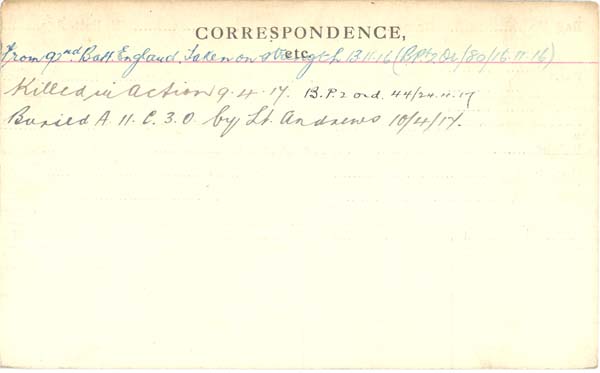 CORRESPONDENCE,
etc.
From 92nd Batt. England. Taken on strength 13.11.16 (B.Pt 2 Or/80/16.11.16)
Killed in Action 9.4.17. B.P.2 ord. 44/24.11.17
Buried A 11.C.3.0 by Lt. Andrews 10/4/17.